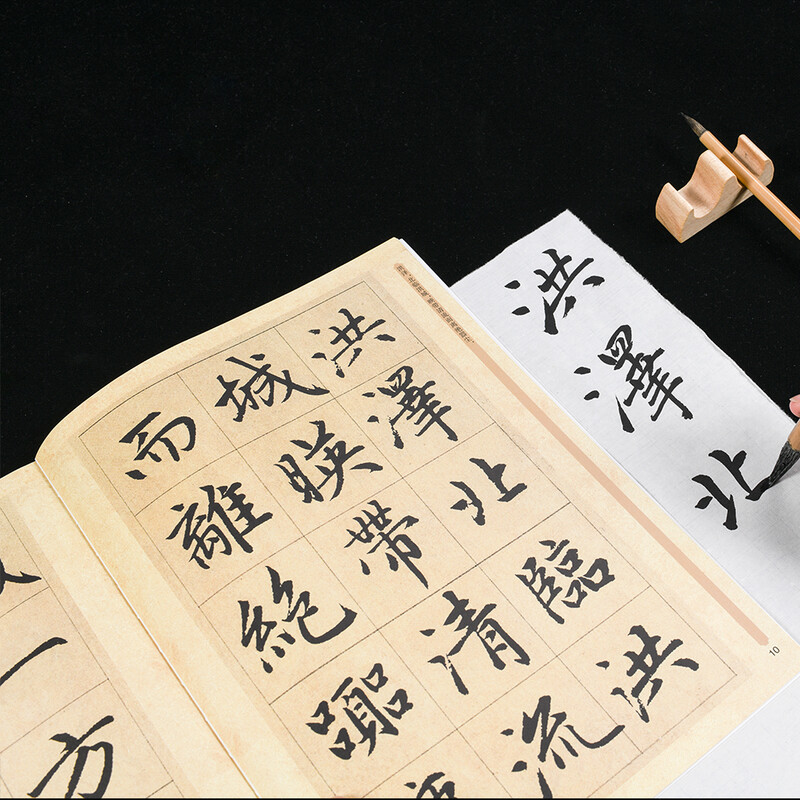 洪澤北臨洪
城暎帶清流
而離絶
一方
10
洪澤北